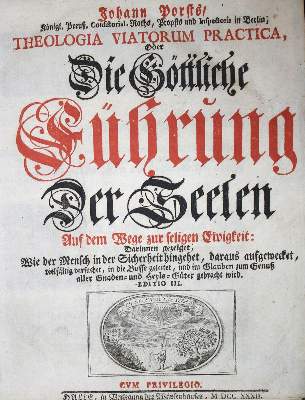 Johann Porsts/
Königl. Preuß. Consistorial-Raths, Propsts und Inspectoris in Berlin,
THEOLOGIA VIATORUM PRACTICA,
Oder
Die Göttliche
Führung
Der Seelen
Auf dem Wege zur seligen Ewigkeit:
Darinnen gezeiget,
Wie der Mensch in der Sicherheit hingehet, daraus aufgewecket,
vielfältig versuchet, in die Busse geleitet, und im Glauben zum Genuß
aller Gnaden- und Heyls-Güter gebracht wird.
EDITIO III.
CVM PRIVILEGIO.
HALLE, in Verlegung des Wäysenhauses, M DCC XXXII.